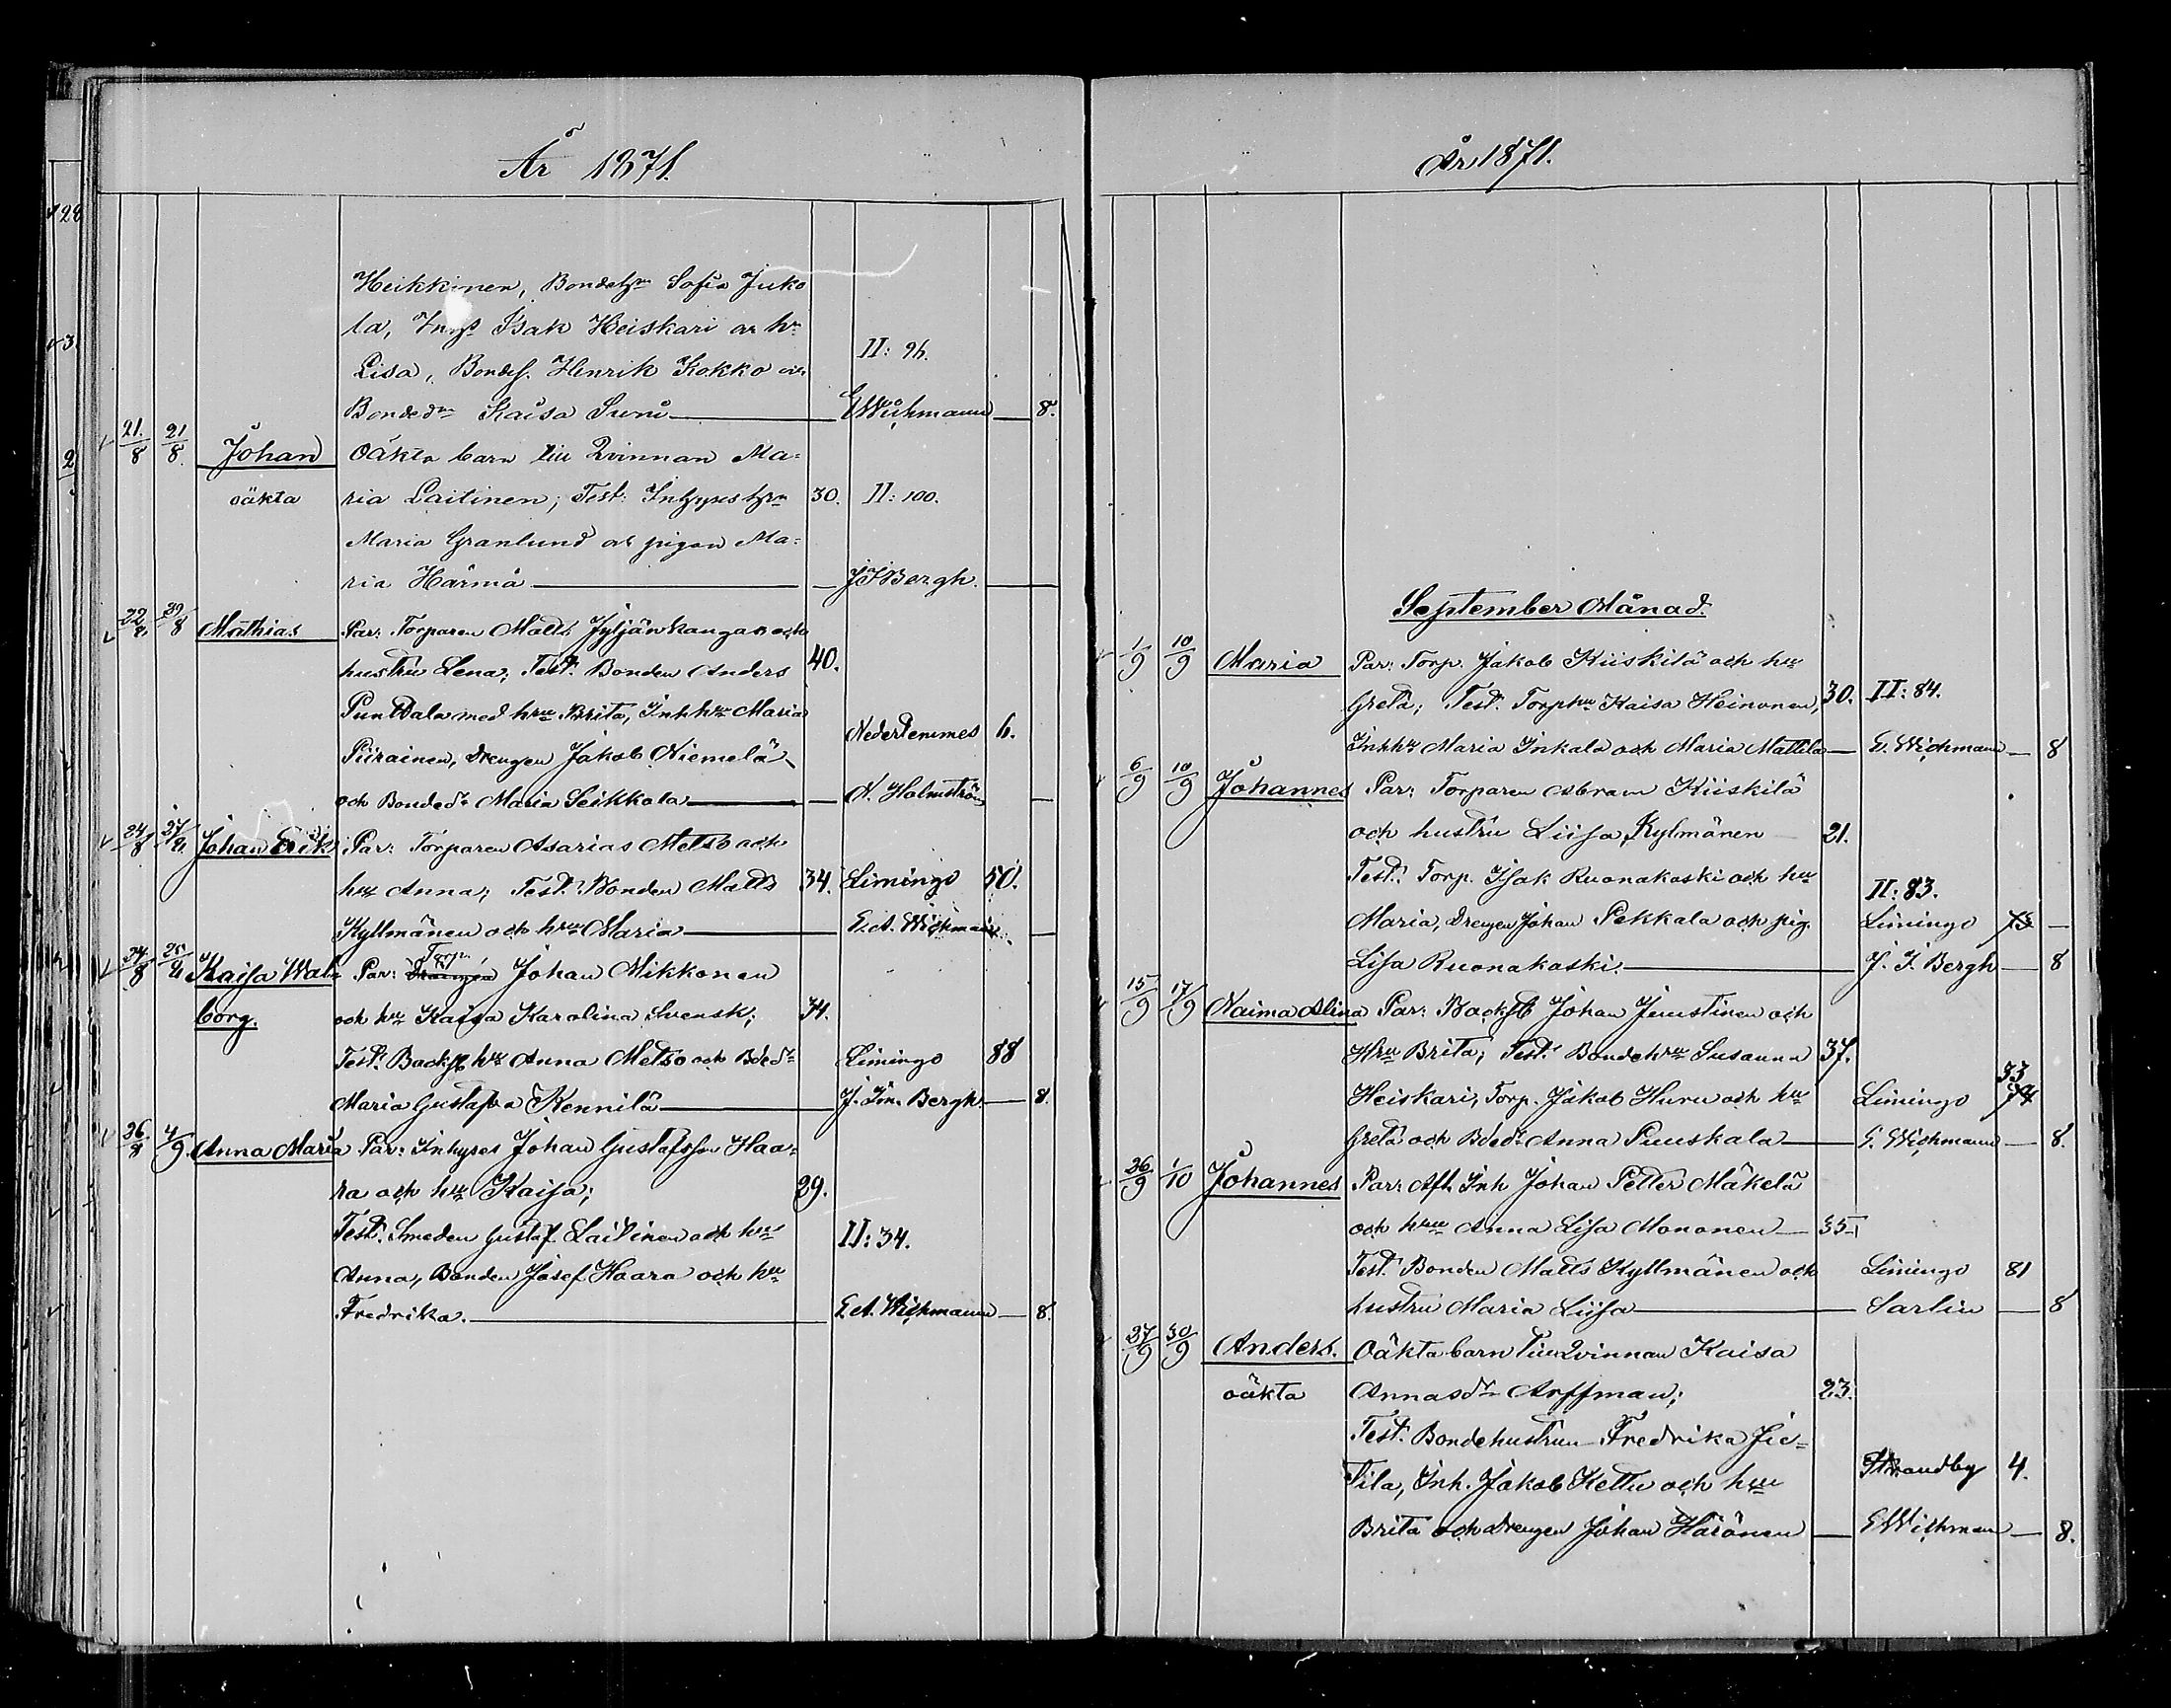 År 1871.
Heikkinen, Bondehn Sofia Juko
la, Inhys Isak Heiskari och hn
Lisa, Bondes. Henrik Kokko och
II: 96.
Bondedn Kaisa Suni — EWichmann — 8.
21/8 21/8 Johan Oäkta barn till Qvinnan Ma-
oäkta ria Laitinen; Test: Inhyses hn 30. II: 100.
Maria Granlund och pigan Ma-
ria Härmä — JIBergh.
22/8 29/8 Mathias Par: Torparen Matts Jyljänkangas och
hustru Lena; Test. Bonden Anders 40.
Punttala med hru Brita, Inh hru Maria
Nedertemmes 6.
Piirainen, drengen Jakob Niemelä
och Bondedr Maria Seikkala — A. Holmström —
24/8 27/8 Johan Erik Par: Torparen Asarias Metso och
hru Anna; Test. Bonden Matts 34. Limingo 50.
Kyllmänen och hru Maria — E.A. Wichmann —
24/8 25/8 Kaisa Wal- Par: Drengen Torp. Johan Mikkonen
borg. och hru Kaisa Karolina Svensk; 34.
Test. Backst hru Anna Metso och Bdedr Limingo 88
Maria Gustafva Kennilä — J. Im. Bergh. — 8.
26/8 4/9 Anna Maria Par: Inhyses Johan Gustafsson Haa-
ra och hru Kaisa; 29.
Test. Smeden Gustaf Laitinen och hru II: 34.
Anna, Bonden Josef Haara och hru
Fredrika. — E.A. Wichmann — 8.
År 1871.
September Månad.
1/9 10/9 Maria Par: Torp. Jakob Kiiskilä och hru
Greta; Test. Torphru Kaisa Heinonen, 30. II: 84.
Inhhr Maria Inkala och Maria Mattila — E. Wichmann — 8
6/9 10/9 Johannes Par: Torparen Abram Kiiskilä
och hustru Liisa Kylmänen 21.
Test. Torp. Isak Ruonakoski och hu
II: 83.
Maria, Drengen Johan Pekkala och pig. Limingo 73 —
Lisa Ruonakoski. — J. I. Bergh — 8
15/9 17/9 Naima Alina Par: Backst Johan Juustinen och
Hru Brita; Test. Bondehru Susanna 37.
Heiskari, Torp. Jakob Huru och hu Limingo 33 74
Greta och Bdedr Anna Puuskala — E. Wichmann — 8.
26/9 1/10 Johannes Par: Afl. Inh Johan Petter Mäkelä
och hru Anna Lisa Mononen — 35
Test. Bonden Matts Kyllmänen och Limingo 81
hustru Maria Liisa — Sarlin — 8
27/9 30/9 Anders. Oäkta barn till Qvinnan Kaisa
oäkta Annasdr Arffman; 23.
Test. Bondehustrun Fredrika Jie-
Strandby 4.
tila, Inh. Jakob Kettu och hru
Brita och drengen Johan Harönen — EWichmann — 8.